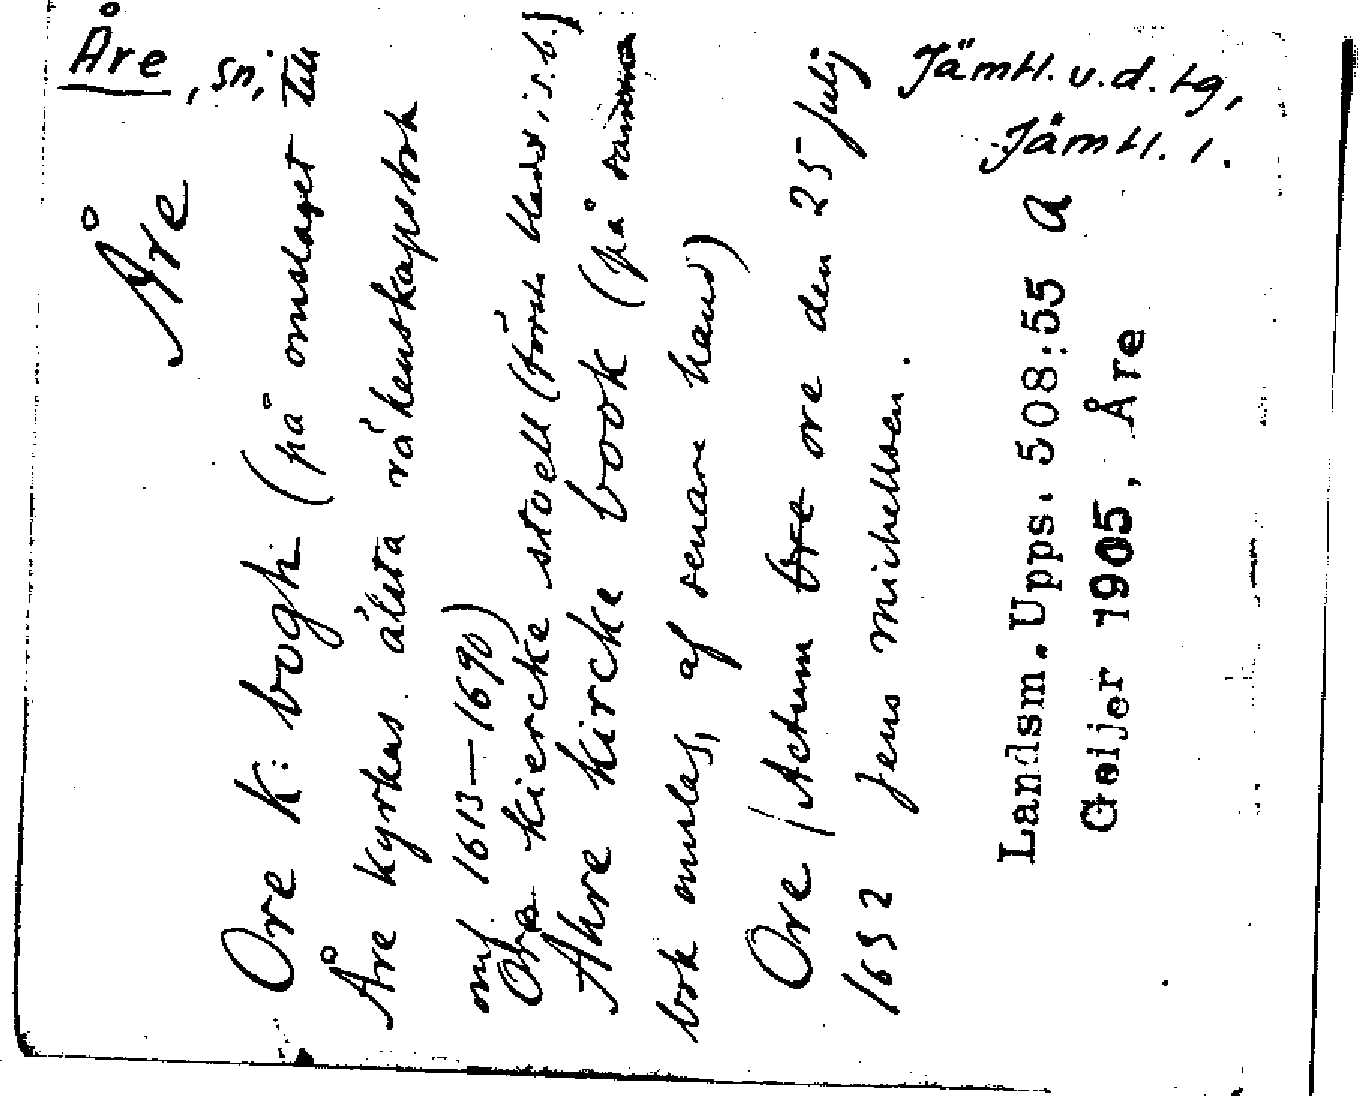 Åre, sn,
Jämtl. v. d. tg,
Jämtl. l.
Åre
Ore K: bogh (på omslaget till
Åre kyrkas älsta räkenskapsbok
omf. 1613–1690)
Ore kiercke stoell (första bladet i s. b.)
Ahre kircke book (på samma
bok omslag, af senare hand)
Ore (Actum ore den 25 Julij
1652 Jens michellsen.
Landsm. Upps. 508:55 a
Geijer 1905, Åre